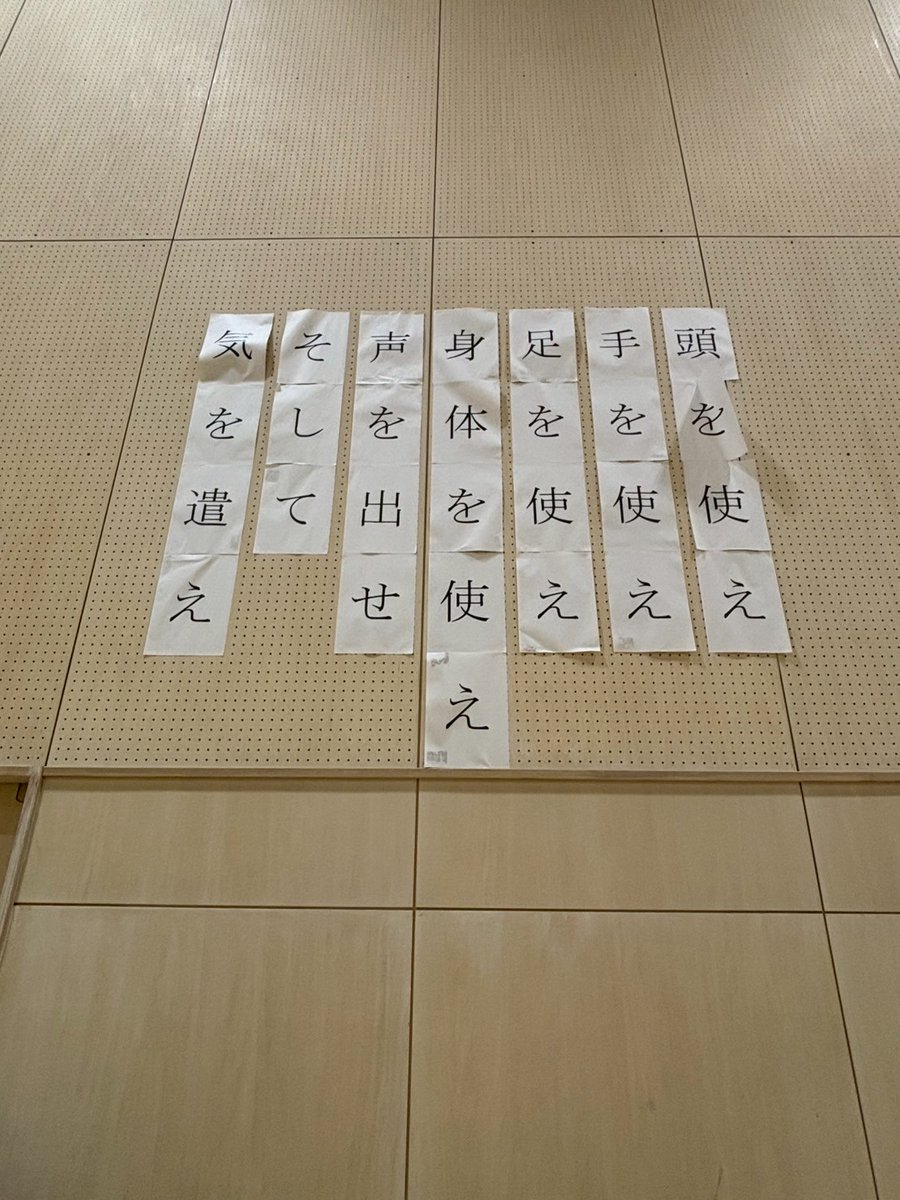 頭を使え
手を使え
足を使え
身体を使え
声を出せ
そして
気を遣え